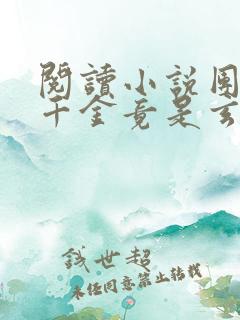 閱讀小說團
千金竟是玄
錢世超
未經同意禁止轉載